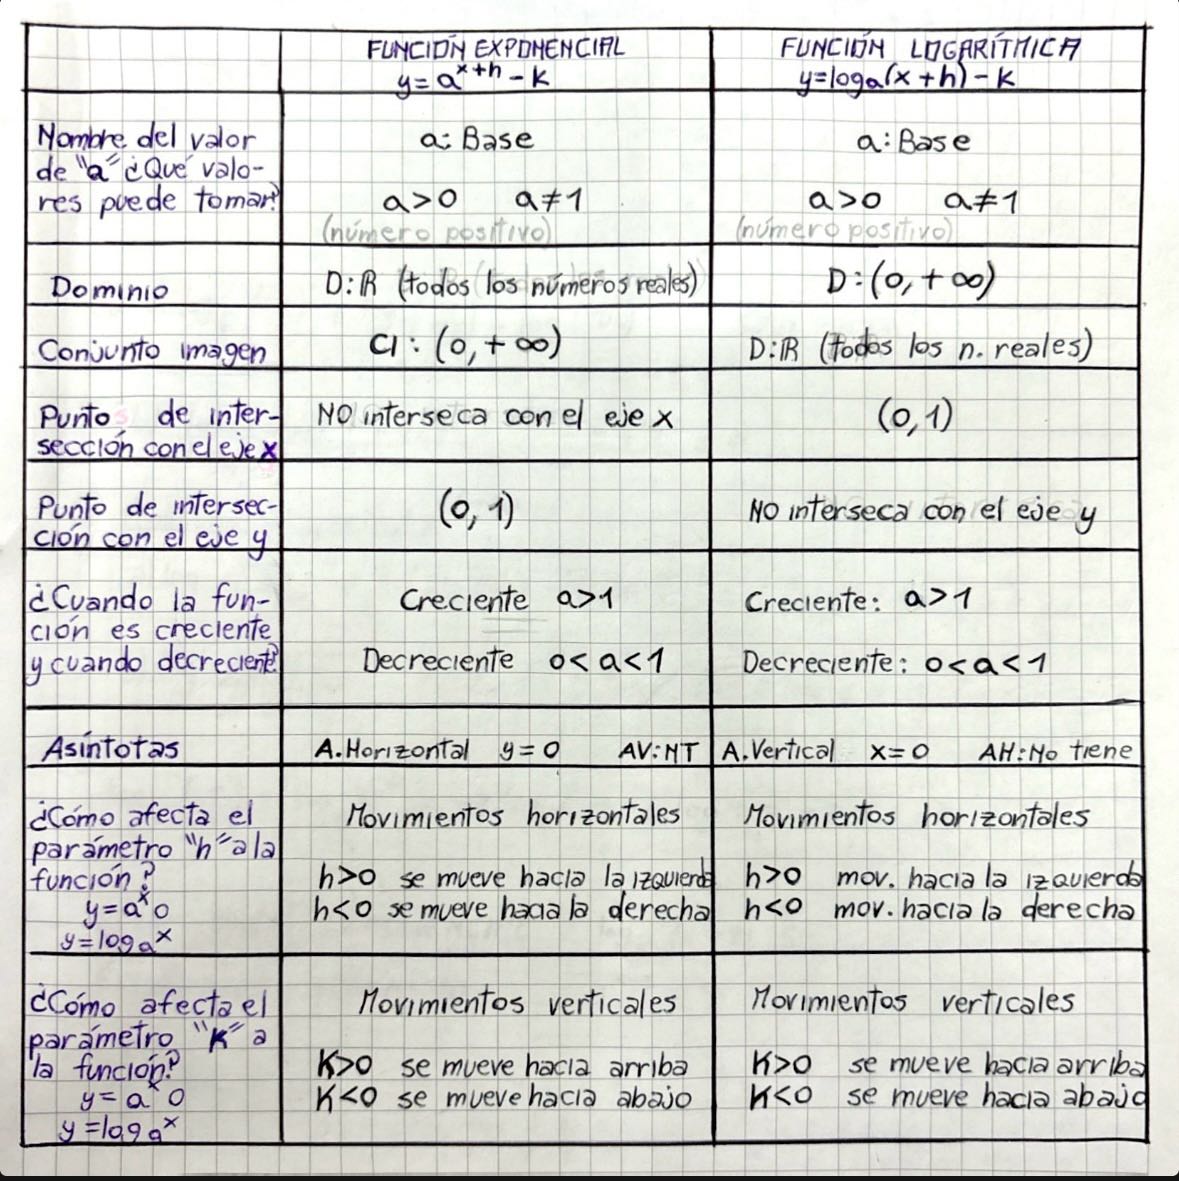 FUNCIÓN EXPONENCIAL
y = a^x+h - k
FUNCIÓN LOGARÍTMICA
y=logₐ(x + h) - k
Nombre del valor
de "a" ¿Qué valo-
res puede tomar?
a: Base
a>0 a≠1
(número positivo)
a: Base
a>0 a≠1
(número positivo)
Dominio
D: ℝ (todos los números reales)
D: (0, + ∞)
Conjunto imagen
CI : (0, + ∞)
D: ℝ (todos los n. reales)
Puntos de inter-
sección con el eje x
NO interseca con el eje x
(0,1)
Punto de intersec-
ción con el eje y
(0, 1)
NO interseca con el eje y
¿Cuando la fun-
ción es creciente
y cuando decreciente?
Creciente a>1
Decreciente 0< a<1
Creciente: a>1
Decreciente: 0<a<1
Asíntotas
A.Horizontal y=0 AV:NT
A.Vertical x=0 AH:No tiene
¿Cómo afecta el
parámetro "h" a la
función?
y=a^x o
y=logₐx
Movimientos horizontales
h>0 se mueve hacia la izquierda
h<0 se mueve hacia la derecha
Movimientos horizontales
h>0 mov. hacia la izquierda
h<0 mov. hacia la derecha
¿Cómo afecta el
parámetro "K" a
la función?
y=a^x o
y=logₐx
Movimientos verticales
K>0 se mueve hacia arriba
K<0 se mueve hacia abajo
Movimientos verticales
K>0 se mueve hacia arriba
K<0 se mueve hacia abajo